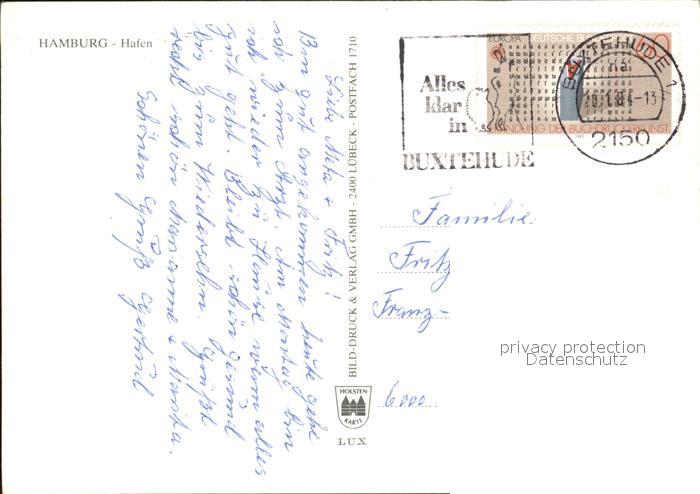 HAMBURG - Hafen
Liebe Meta + Fritz!
Bin gut angekommen heute gehe
ich zum Arzt. Am Montag bin
ich wieder zu Hause wenn alles
gut geht. Bleibt schön gesund
bis zum Wiedersehn. Grüßt
recht schön Marianne + Marita.
Schönen Gruß Gertrud
BILD-DRUCK & VERLAG GMBH - 2400 LÜBECK - POSTFACH 1710
HOLSTEN-
KARTE
LUX
Alles
klar
in
BUXTEHUDE
EUROPA DEUTSCHE
ERFINDUNG DER BUCHDRUCKERKUNST
BUXTEHUDE 1
-13
2150
Familie
Fritz
Franz-
privacy protection
Datenschutz
6000